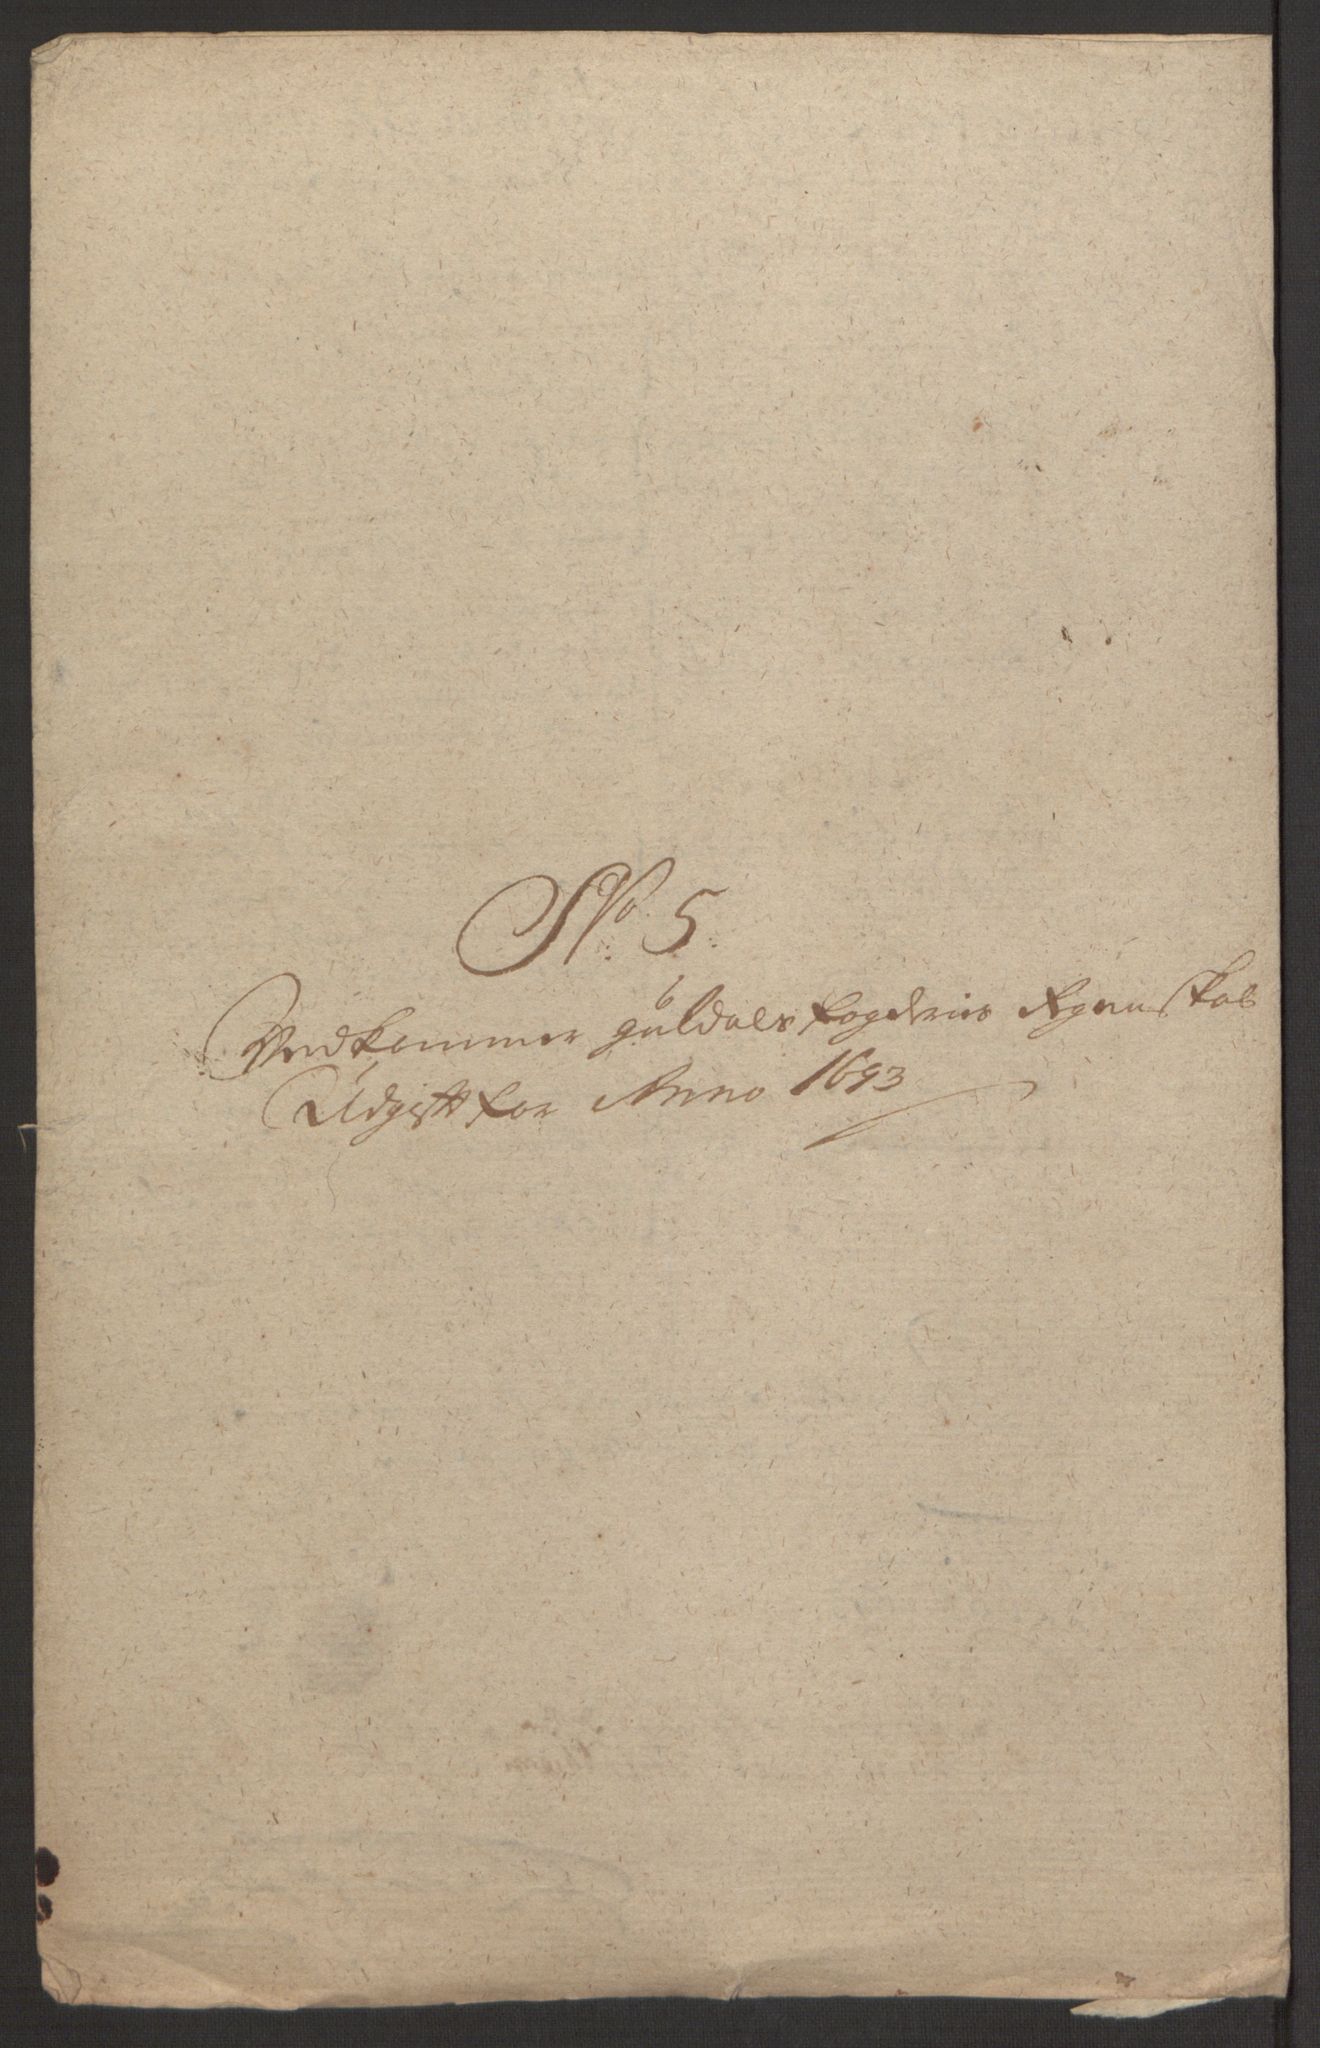 No. 5
Vedkommer Guldals fogderies Regenskab
Udgifft for Anno 1693